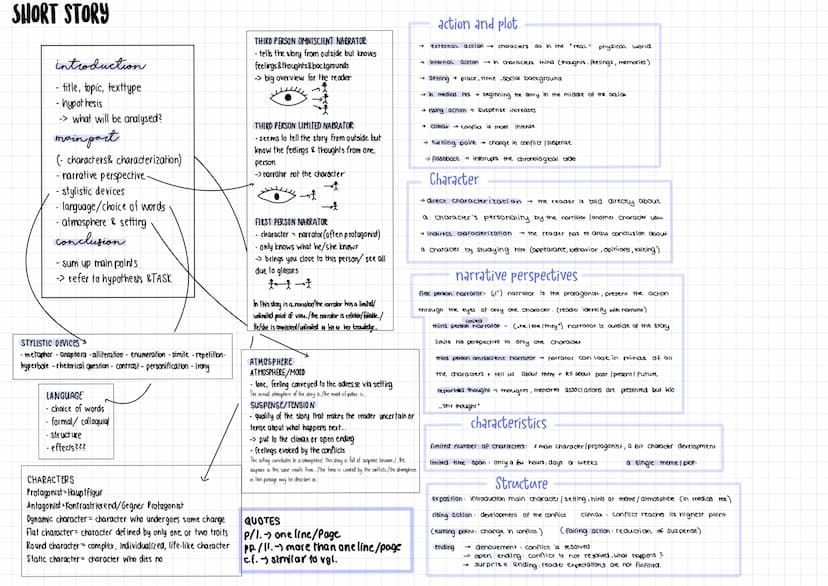 SHORT STORY
introduction
- title, topic, texttype
- hypothesis
-> what will be analysed?
main part
(- characters & characterization)
- narrative perspective
- stylistic devices
- language/choice of words
- atmosphere & setting
conclusion
- sum up main points
-> refer to hypothesis & TASK
STYLISTIC DEVICES
- metapher - anaphora - alliteration - enumeration - simile - repetition-
hyperbole - rhetorical question - contrast - personification - irony
LANGUAGE
- choice of words
- formal/ colloquial
- structure
- effects???
CHARACTERS
Protagonist=Hauptfigur
Antagonist=Kontrastierend/Gegner Protagonist
Dynamic character= character who undergoes some change
Flat character= character defined by only one or two traits
Round character= complex, individualized, life-like character
Static character= character who dies no
THIRD PERSON OMNISCIENT NARRATOR
- tells the story from outside but knows
feelings&thoughts&backgrounds
-> big overview for the reader
THIRD PERSON LIMITED NARRATOR
- seems to tell the story from outside but
know the feelings & thoughts from one
person
-> narrator not the character
FIRST PERSON NARRATOR
- character = narrator (often protagonist)
- only knows what he/she knows
-> brings you close to this person/ see all
due to glasses
In this story is a narrator/the narrator has a limited/
unlimited point of view./the narrator is reliable/
He/she is omniscient/unlimited in his or her knowledge..
ATMOSPHERE
ATMOSPHERE/MOOD
- tone, feeling conveyed to the adresse via setting
The overall atmosphere of the story is./the mood of is...
SUSPENSE/TENSION
- quality of the story that makes the reader uncertain or
tense about what happens next...
-> put to the climax or open ending
- feelings evoked by the conflicts
The setting contributes to a atmosphere/ This story is full of suspense because/ the
suspense in this scene results from ../the tense is created by the conflicts/the atmosphere
in this passage may be describes as..
QUOTES
p/l. -> one line/Page
pp./ll. -> more than one line/page
c.f. -> similar to vgl.
action and plot
→ external action → characters do in the "real" physical world
→ internal action → in characters mind (thoughts, feelings, memories)
→ setting → place, time, social background
→ in medias res → beginning the story in the middle of the action
→ rising action → suspense increases
→ climax → conflict is most intense
→ turning point → change in conflict/suspense
→ flashback → interrupts the chronological order
Character
→ direct characterization → the reader is told directly about
a character's personality by the narrator/another character
→ indirect characterization → the reader has to draw conclusion about
a character by studying him (appearance, behavior, opinions, talking)
narrative perspectives
first person narrator - ("I") narrator is the protagonist, present the action
through the eyes of only one character. (reader identify with narrator)
limited
third person narrator - (,,he/she/they") narrator is outside of the story
limits his perspective to any one character
third person omniscient narrator → narrator can look in minds of all
the characters + tell us about them + tell about past/present/future
reported thought → thoughts, memories associations are presented but w/o
,,she thought"
characteristics
limited number of characters: 1 main character/protagonist, a bit character development
limited time span: only a few hours, days or weeks a single theme/plot
Structure
exposition: introduction main character/setting, hints of theme/atmosphere (in medias res)
rising action: development of the conflict climax: conflict reaches its highest point
(turning point: change in conflict) (falling action: reduction of suspense)
ending → denouement - conflict is resolved
→ open ending: conflict is not resolved, what happens?
→ surprise ending: reader expectations are not fulfilled.